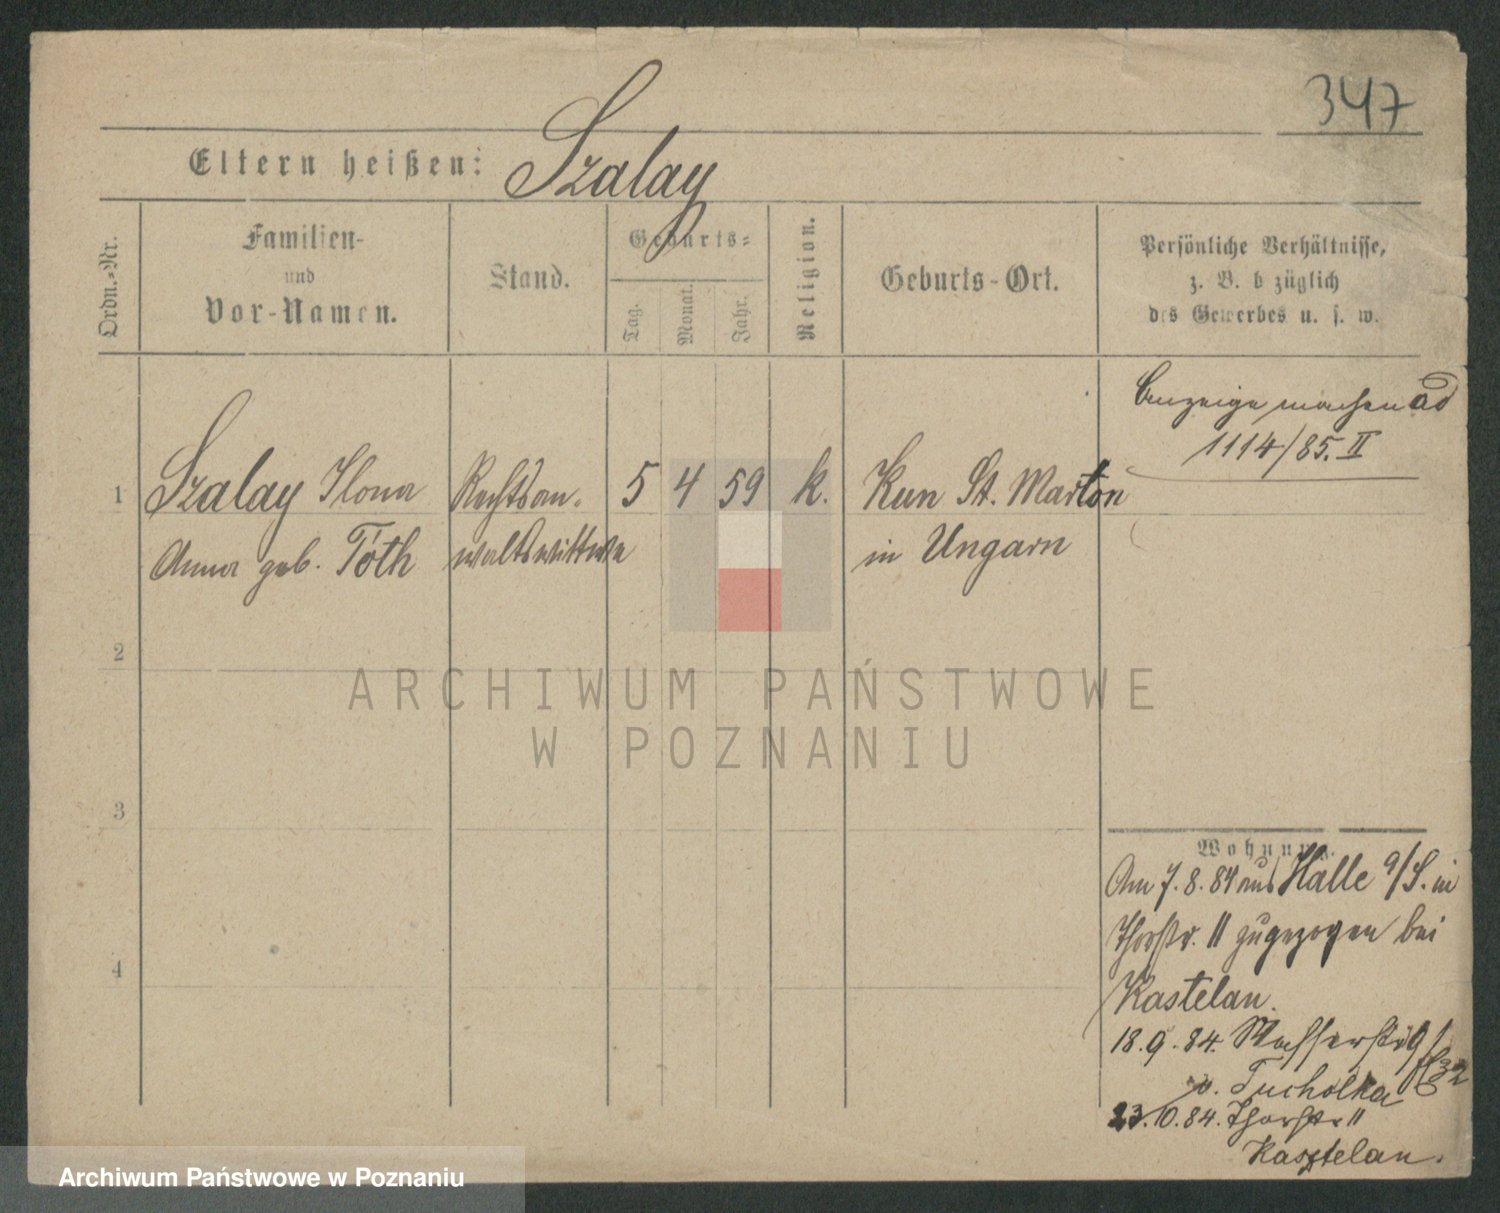 347
Eltern heißen: Szalay
Ordn.-Nr.
Familien-
und
Vor-Namen.
Stand.
Geburts-
Tag.
Monat.
Jahr.
Religion.
Geburts-Ort.
Persönliche Verhältnisse,
z. B. bezüglich
des Gewerbes u. s. w.
Anzeige machen ad
1114/85. II
1 Szalay Ilona Rechtsan- 5 4 59 k. Kun St. Marton
Anna geb. Tóth waltswittwe in Ungarn
2
3
4
Wohnung.
Am 7. 8. 84 aus Halle a/S. in
Thorstr. 11 zugezogen bei
Kastelan.
18. 9. 84. Wasserstr
b. Tucholka
23. 10. 84. Thorstr 11
Kasztelan.
ARCHIWUM PAŃSTWOWE
W POZNANIU
Archiwum Państwowe w Poznaniu